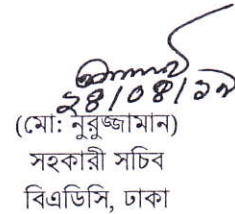 ২৪/০৪/১৯
(মো: নুরুজ্জামান)
সহকারী সচিব
বিএডিসি, ঢাকা